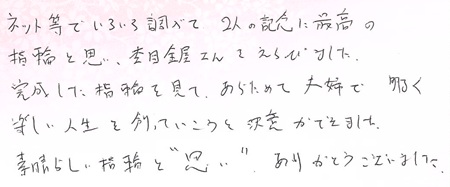 ネット等でいろいろ調べて 2人の記念に最高の
指輪と思い、杢目金屋さんをえらびました。
完成した指輪を見て、あらためて夫婦で 明るく
楽しい人生を創っていこうと決意ができました。
素晴らしい指輪と"思い"、ありがとうございました。